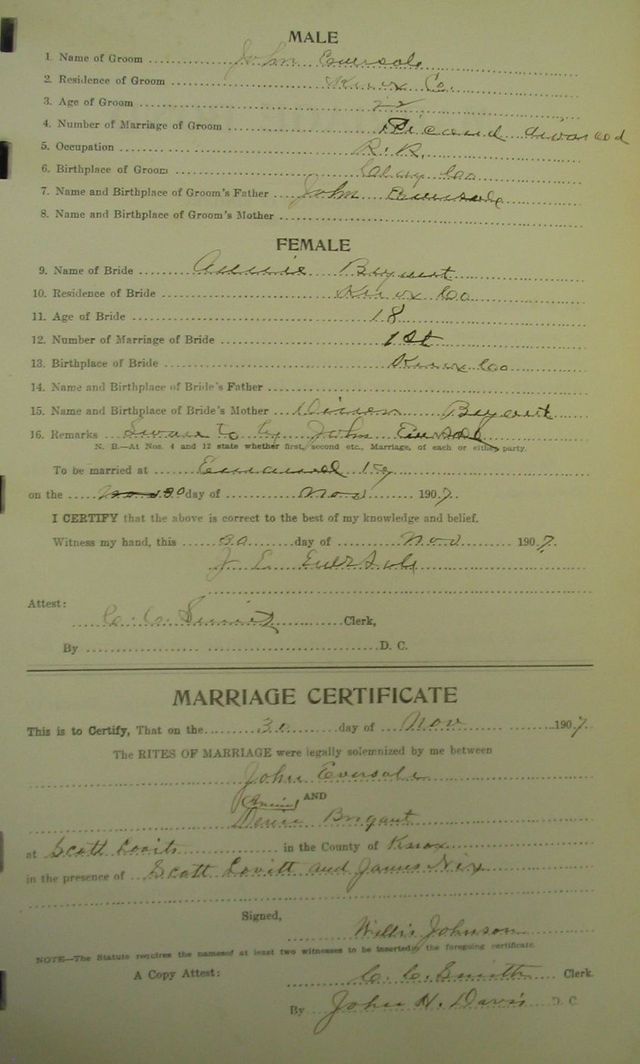 MALE
1. Name of Groom John Eversole
2. Residence of Groom Knox Co.
3. Age of Groom 22
4. Number of Marriage of Groom
5. Occupation R. R.
6. Birthplace of Groom Clay Co
7. Name and Birthplace of Groom's Father John Eversole
8. Name and Birthplace of Groom's Mother
FEMALE
9. Name of Bride Annie
10. Residence of Bride Knox Co
11. Age of Bride 18
12. Number of Marriage of Bride 1st
13. Birthplace of Bride Knox Co
14. Name and Birthplace of Bride's Father
15. Name and Birthplace of Bride's Mother
16. Remarks Swain to by John Eversole
N. B.—At Nos. 4 and 12 state whether first, second etc., Marriage, of each or either party.
To be married at Emanuel Ky
on the 30 day of Nov 1907.
I CERTIFY that the above is correct to the best of my knowledge and belief.
Witness my hand, this 30 day of Nov 1907.
J. E. Eversole
Attest:
C. C. Smith Clerk,
By D. C.
MARRIAGE CERTIFICATE
This is to Certify, That on the 30 day of Nov 1907
The RITES OF MARRIAGE were legally solemnized by me between
John Eversole
(Annie) AND
Brigant
at Scott Lovits in the County of Knox
in the presence of Scott Lovitt and James Nix
Signed,
Willis Johnson
NOTE—The Statute requires the names of at least two witnesses to be inserted in the foregoing certificate
A Copy Attest: C. C. Smith Clerk.
By John H. Davis D. C.